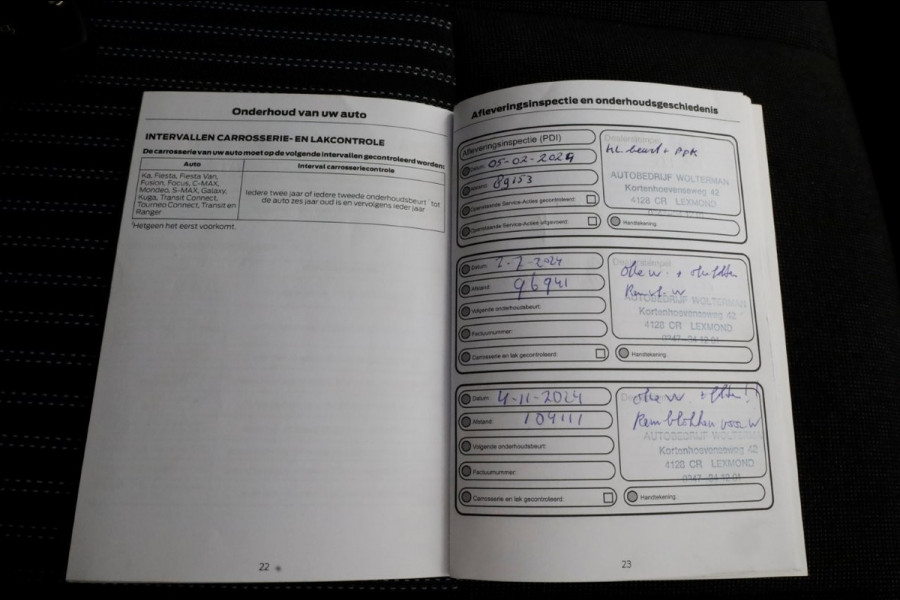 Onderhoud van uw auto
INTERVALLEN CARROSSERIE- EN LAKCONTROLE
De carrosserie van uw auto moet op de volgende intervallen gecontroleerd worden:
Auto
Interval carrosseriecontrole
Ka, Fiesta, Fiesta Van,
Fusion, Focus, C-MAX,
Mondeo, S-MAX, Galaxy,
Kuga, Transit Connect,
Tourneo Connect, Transit en
Ranger
Iedere twee jaar of iedere tweede onderhoudsbeurt* tot
de auto zes jaar oud is en vervolgens ieder jaar
*Hetgeen het eerst voorkomt.
22
Afleveringsinspectie en onderhoudsgeschiedenis
Afleveringsinspectie (PDI)
Datum: 05-02-2024
89153
Openstaande Service-Acties gecontroleerd:
Openstaande Service-Acties uitgevoerd:
Dealerstempel
kl. beurt + APK
AUTOBEDRIJF WOLTERMAN
Kortenhoevenseweg 42
4128 CR LEXMOND
Handtekening
Datum: 2-7-2024
Afstand: 96941
Volgende onderhoudsbeurt:
Factuurnummer:
Carrosserie en lak gecontroleerd:
Dealerstempel
AUTOBEDRIJF WOLTERMAN
Kortenhoevenseweg 42
4128 CR LEXMOND
0347-34 12 61
Handtekening
Datum: 4-11-2024
Afstand: 104111
Volgende onderhoudsbeurt:
Factuurnummer:
Carrosserie en lak gecontroleerd:
Remblokken voor w
AUTOBEDRIJF WOLTERMAN
Kortenhoevenseweg 42
4128 CR LEXMOND
0347-34 12 61
Handtekening
23